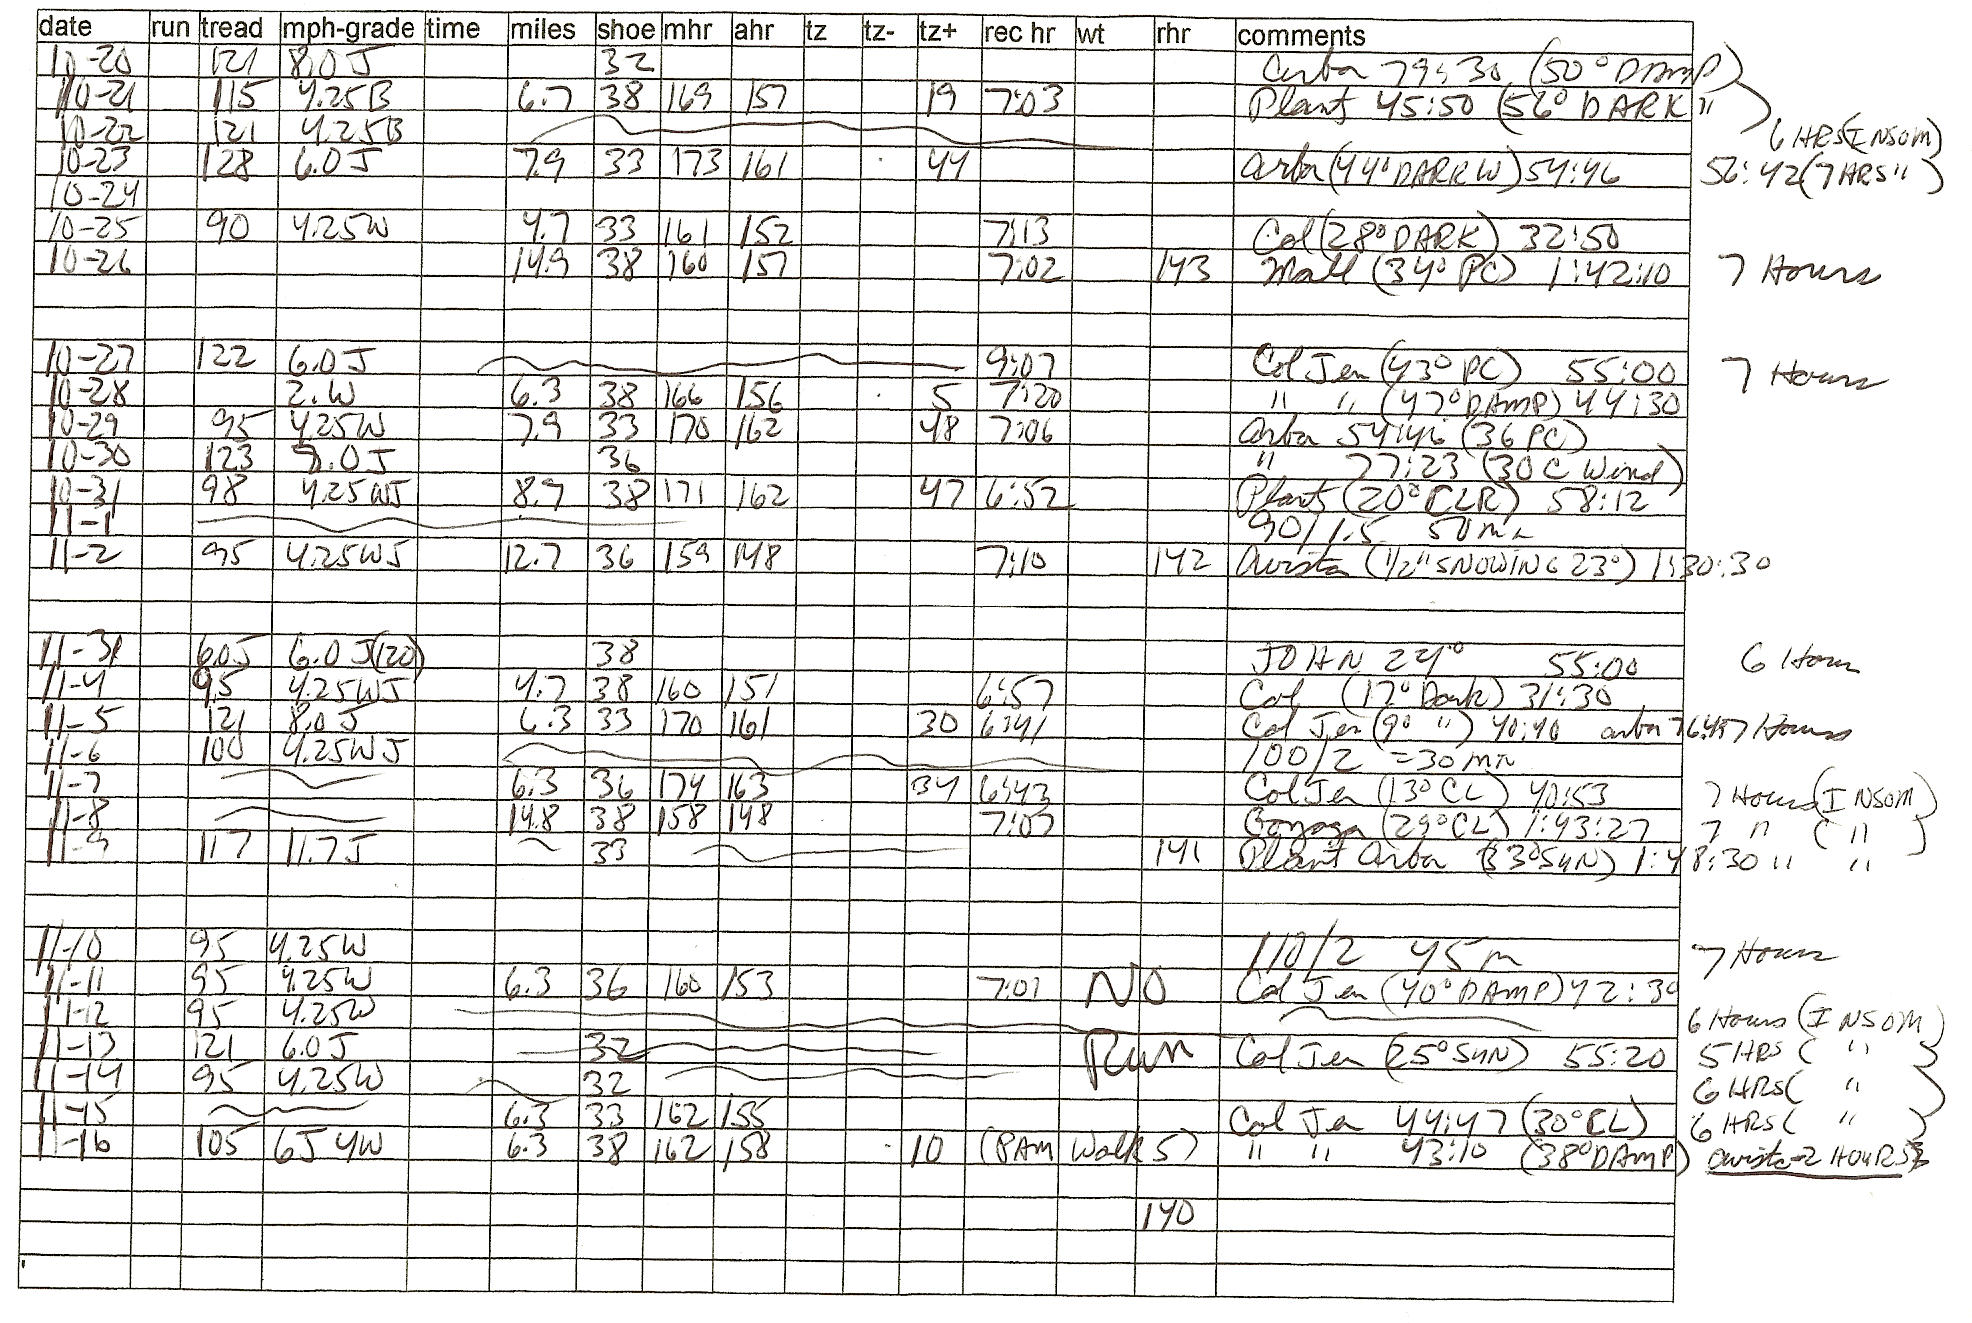 date run tread mph-grade time miles shoe mhr ahr tz tz- tz+ rec hr wt rhr comments
10-20 121 8.0 J 32 Arba 79:30 (50° DAMP)
10-21 115 4.25B 6.7 38 169 157 19 7:03 Plant 45:50 (56° DARK "
10-22 121 4.25B 6 HRS (INSOM)
10-23 128 6.0 J 7.9 33 173 161 44 Arba (44° DARK W) 54:46 56:42 (7 HRS ")
10-24
10-25 90 4.25W 4.7 33 161 152 7:13 Col (28° DARK) 32:50
10-26 14.9 38 160 151 7:02 143 Mall (34° PC) 1:42:10 7 Hours
10-27 122 6.0 J 9:07 Col Jen (43° PC) 55:00 7 Hours
10-28 2. W 6.3 38 166 156 5 7:20 " " (47° DAMP) 44:30
10-29 95 4.25W 7.9 33 170 162 48 7:06 Arba 54:46 (36 PC)
10-30 123 8.0 J 36 " 77:23 (30 C Wind)
10-31 98 4.25WJ 8.7 38 171 162 47 6:52 Plant (20° CLR) 58:12
11-1 90/1.5 50 mn
11-2 95 4.25WJ 12.7 36 159 148 7:10 142 Avista (1/2" SNOWING 23°) 1:30:30
11-3 60J 6.0 J(120) 38 JOHN 24° 55:00 6 Hours
11-4 95 4.25WJ 4.7 38 160 151 6:57 Col (17° Dark) 31:30
11-5 121 8.0 J 6.3 33 170 161 30 6:41 Col Jen (9° ") 40:40 arba 7 Hours
11-6 100 4.25WJ 100/2 =30 mn
11-7 6.3 36 174 163 34 6:43 Col Jen (13° CL) 40:53 7 Hours (INSOM)
11-8 14.8 38 158 148 7:07 Gonzaga (29° CL) 1:43:27 7 " ( " )
11-9 117 11.7 J 33 141 Plant Arba (33° SUN) 1:48:30 " "
11-10 95 4.25W 110/2 45 m 7 Hours
11-11 95 4.25W 6.3 36 160 153 7:01 NO Col Jen (40° DAMP) 42:30
11-12 95 4.25W 6 Hours (INSOM)
11-13 121 6.0 J 32 Run Col Jen (25° SUN) 55:20 5 HRS ( " )
11-14 95 4.25W 32 6 HRS ( " )
11-15 6.3 33 162 155 Col Jen 44:47 (30° CL) 6 HRS ( " )
11-16 105 6J 4W 6.3 38 162 158 10 (PAM Walk 5) " " 43:10 (38° DAMP) avista-2 HOURS
140